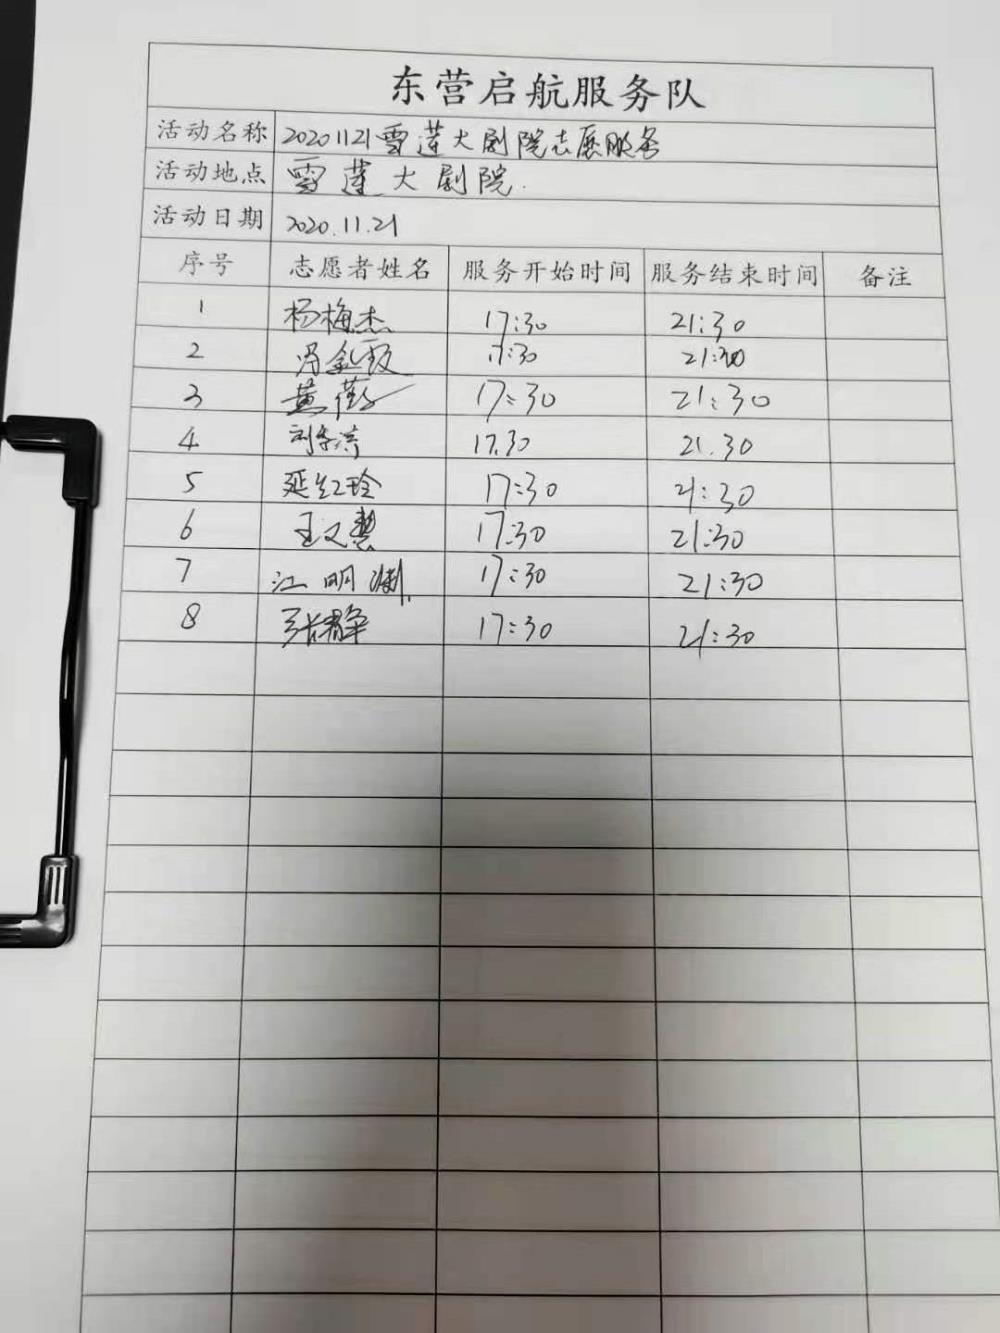 东营启航服务队
活动名称 20201121雪莲大剧院志愿服务
活动地点 雪莲大剧院.
活动日期 2020.11.21
序号 志愿者姓名 服务开始时间 服务结束时间 备注
1 杨梅杰 17:30 21:30
2 17:30 21:30
3 黄薇 17:30 21:30
4 17.30 21.30
5 延红玲 17:30 21:30
6 王文慧 17:30 21:30
7 江明 17:30 21:30
8 张静 17:30 21:30